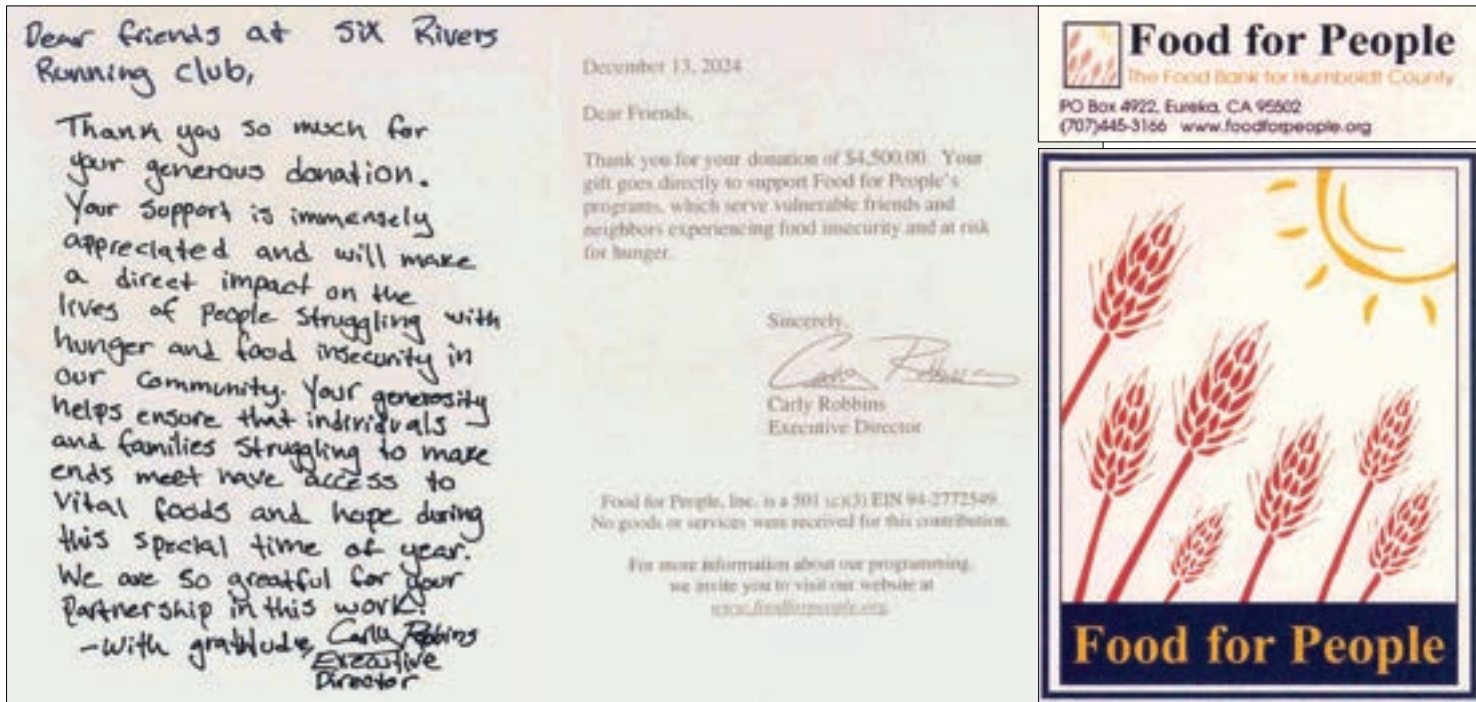 Dear friends at Six Rivers
Running club,
Thank you so much for
your generous donation.
Your support is immensely
appreciated and will make
a direct impact on the
lives of people struggling with
hunger and food insecurity in
our community. Your generosity
helps ensure that individuals
and families struggling to make
ends meet have access to
vital foods and hope during
this special time of year.
We are so greatful for your
partnership in this work!
-with gratitude, Carly Robbins
Executive
Director
December 13, 2024
Dear Friends,
Thank you for your donation of $4,500.00. Your
gift goes directly to support Food for People's
programs, which serve vulnerable friends and
neighbors experiencing food insecurity and at risk
for hunger.
Sincerely,
Carly Robbins
Carly Robbins
Executive Director
Food for People, Inc. is a 501 (c)(3) EIN 94-2772549
No goods or services were received for this contribution.
For more information about our programming,
we invite you to visit our website at
www.foodforpeople.org
Food for People
The Food Bank for Humboldt County
PO Box 4922, Eureka, CA 95502
(707)445-3166 www.foodforpeople.org
Food for People